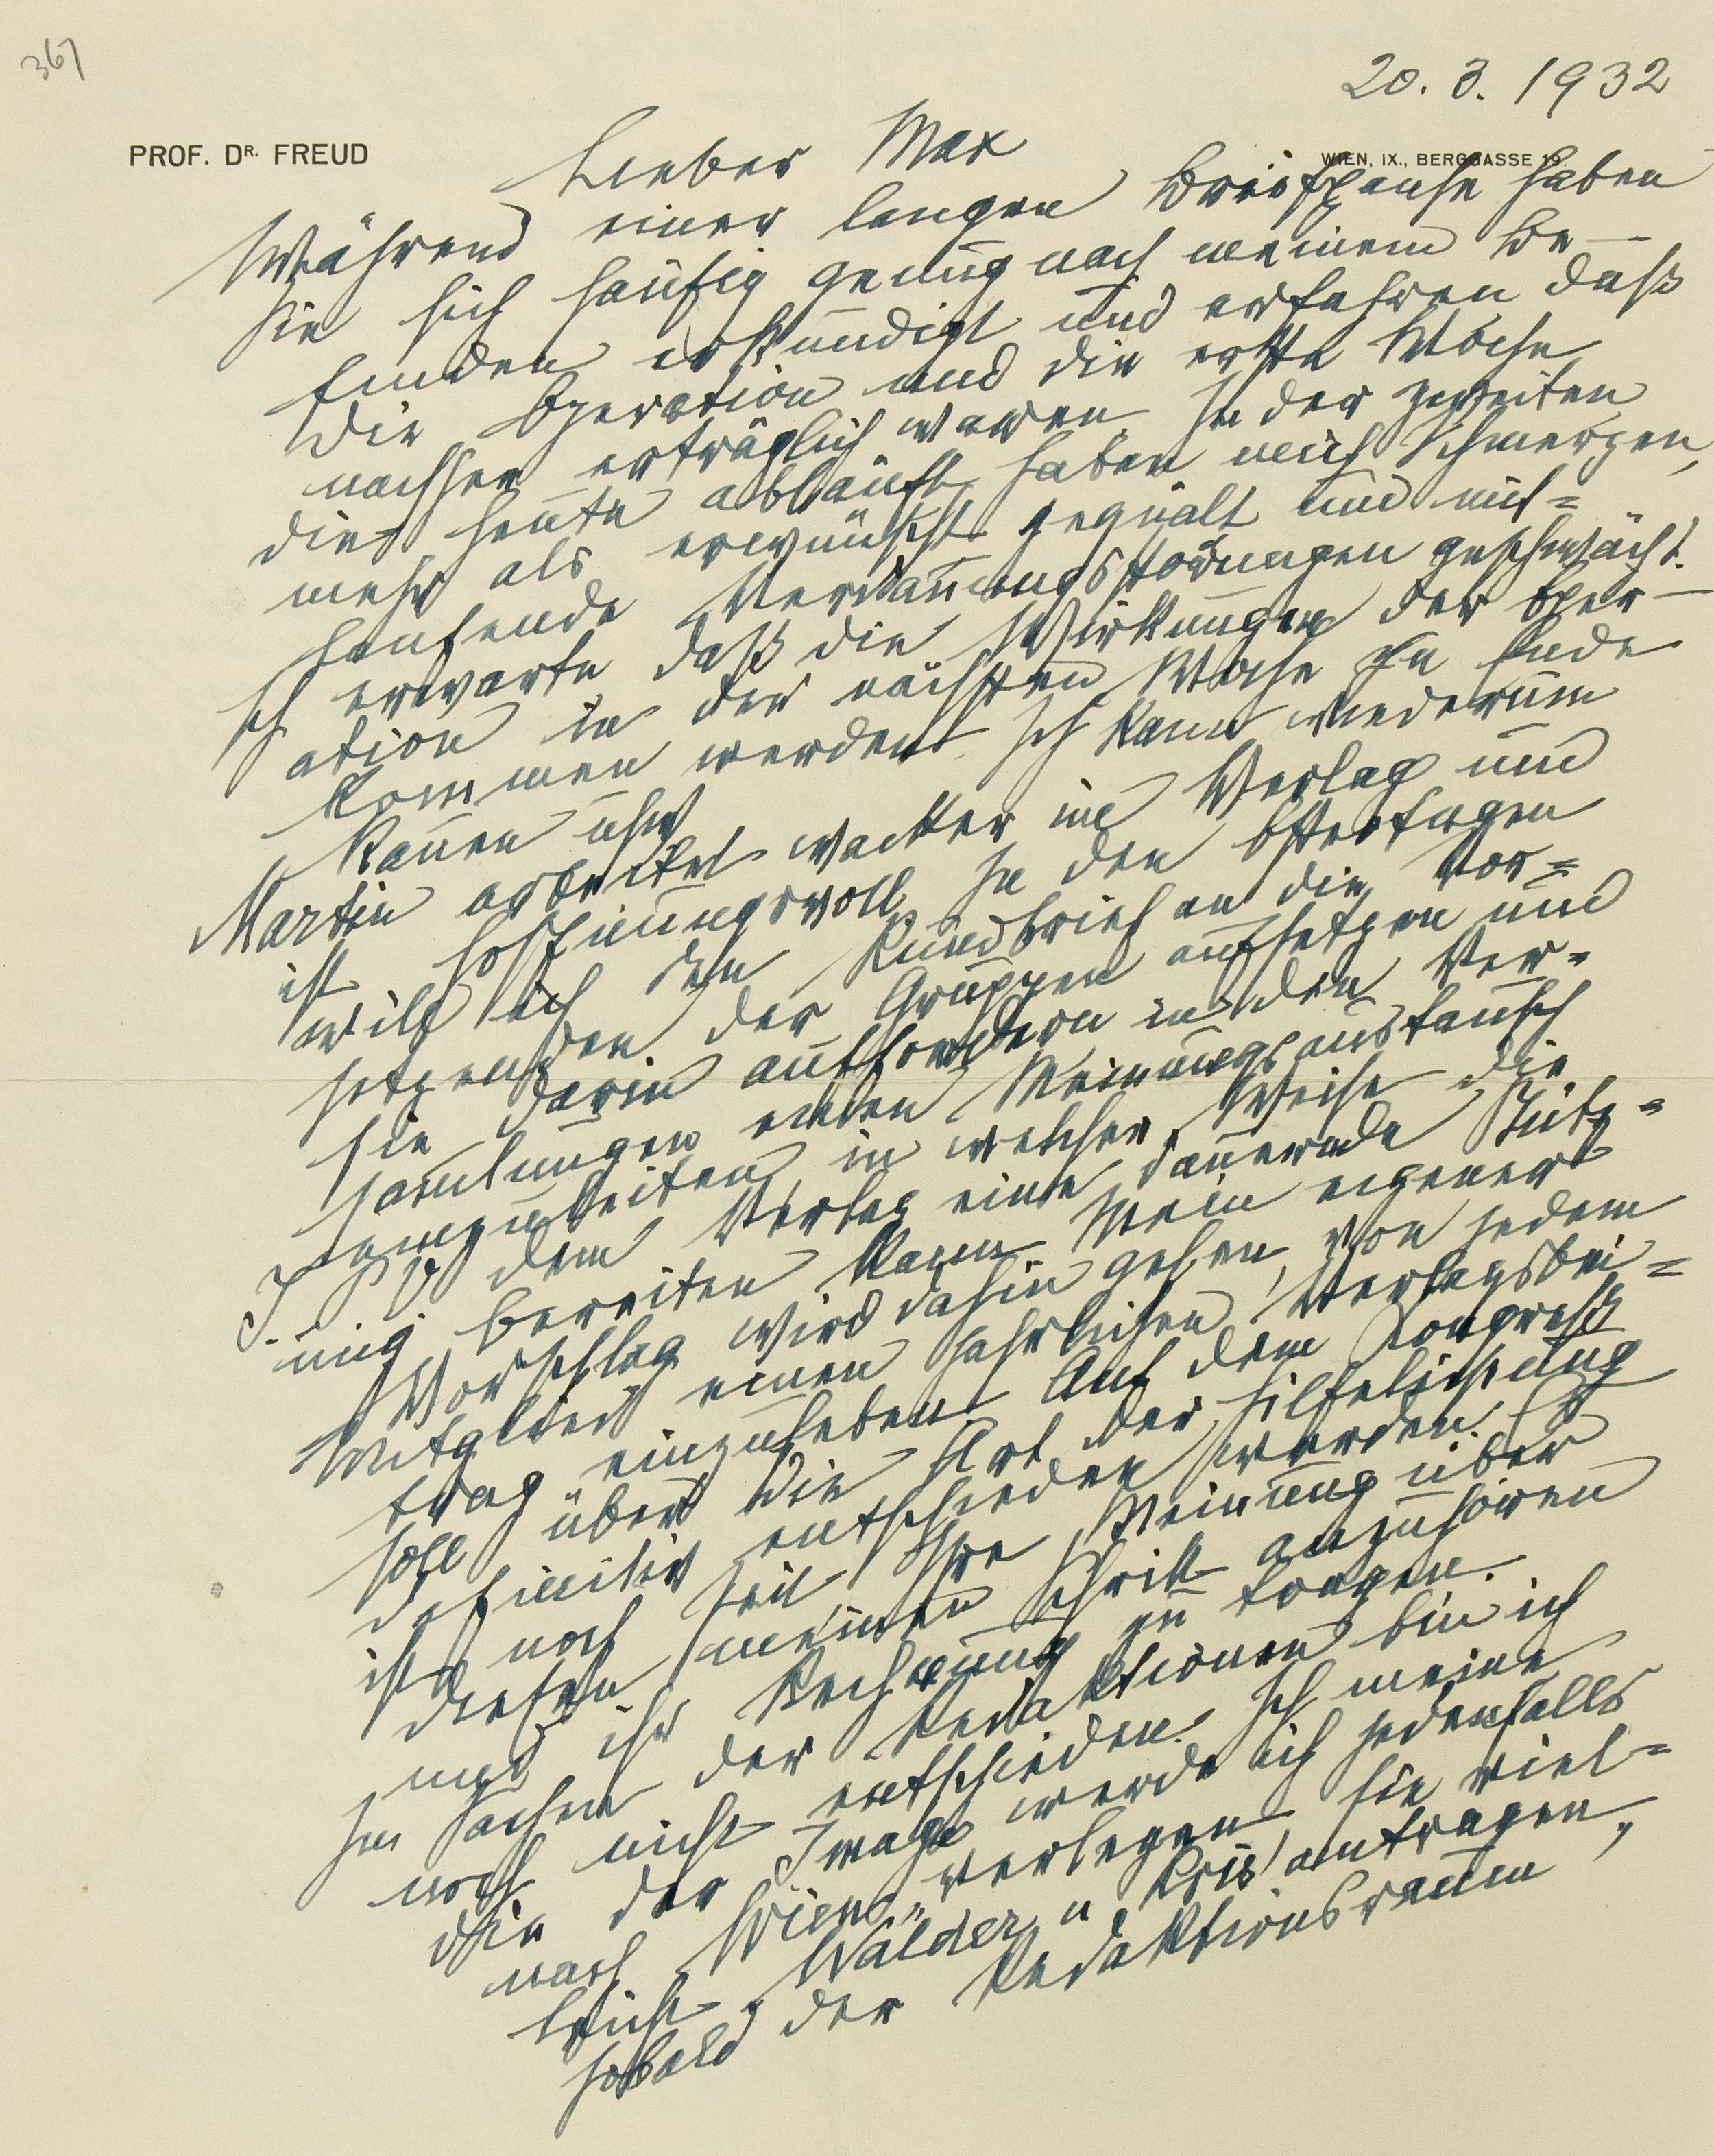 367
20. 3. 1932
PROF. DR. FREUD
WIEN, IX., BERGGASSE 19.
Lieber Max
Während einer langen Briefpause haben
Sie sich häufig genug nach meinem Be-
finden erkundigt und erfahren daß
die Operation und die erste Woche
nachher erträglich waren. In der zweiten
die heute abläuft, haben mich Schmerzen,
mehr als erwünscht gequält und mit=
laufende Verdauungsstörungen geschwächt.
Ich erwarte daß die Wirkungen der Oper-
ation in der nächsten Woche zu Ende
kommen werden. Ich kann wiederum
kauen usw
Martin arbeitet wacker im Verlag und
ist hoffnungsvoll. In den Ostertagen
will ich den Rundbrief an die Vor=
sitzenden der Gruppen aufsetzen und
sie darin auffordern in den Ver=
samlungen einen Meinungsaustausch
einzuleiten, in welcher Weise die
I P V dem Verlag eine dauernde Stütz=
ung bereiten kann. Mein eigener
Vorschlag wird dahin gehen, von jedem
Mitglied einen jährlichen Verlagsbei=
trag einzuheben. Auf dem Kongreß
soll über die Art der Hilfeleistung
definitiv entschieden werden. Es
ist noch Zeit Ihre Meinung über
diesen meinen Schritt anzuhören
und ihr Rechnung zu tragen.
In Sachen der Redaktionen bin ich
noch nicht entschieden. Ich meine
die der Imago werde ich jedenfalls
nach Wien verlegen, sie viel=
leicht Wälder u Kris antragen,
sobald der Redaktionsraum